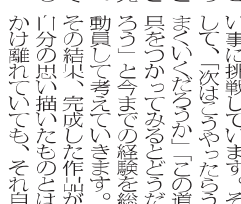 い事に挑戦しています。そ
して、「次はこうやったらう
まくいくだろうか」「この道
具をつかってみるとどうだ
ろう」と今までの経験を総
動員して考えていきます。
その結果、完成した作品が
自分の思い描いたものとは
かけ離れていても、それ自